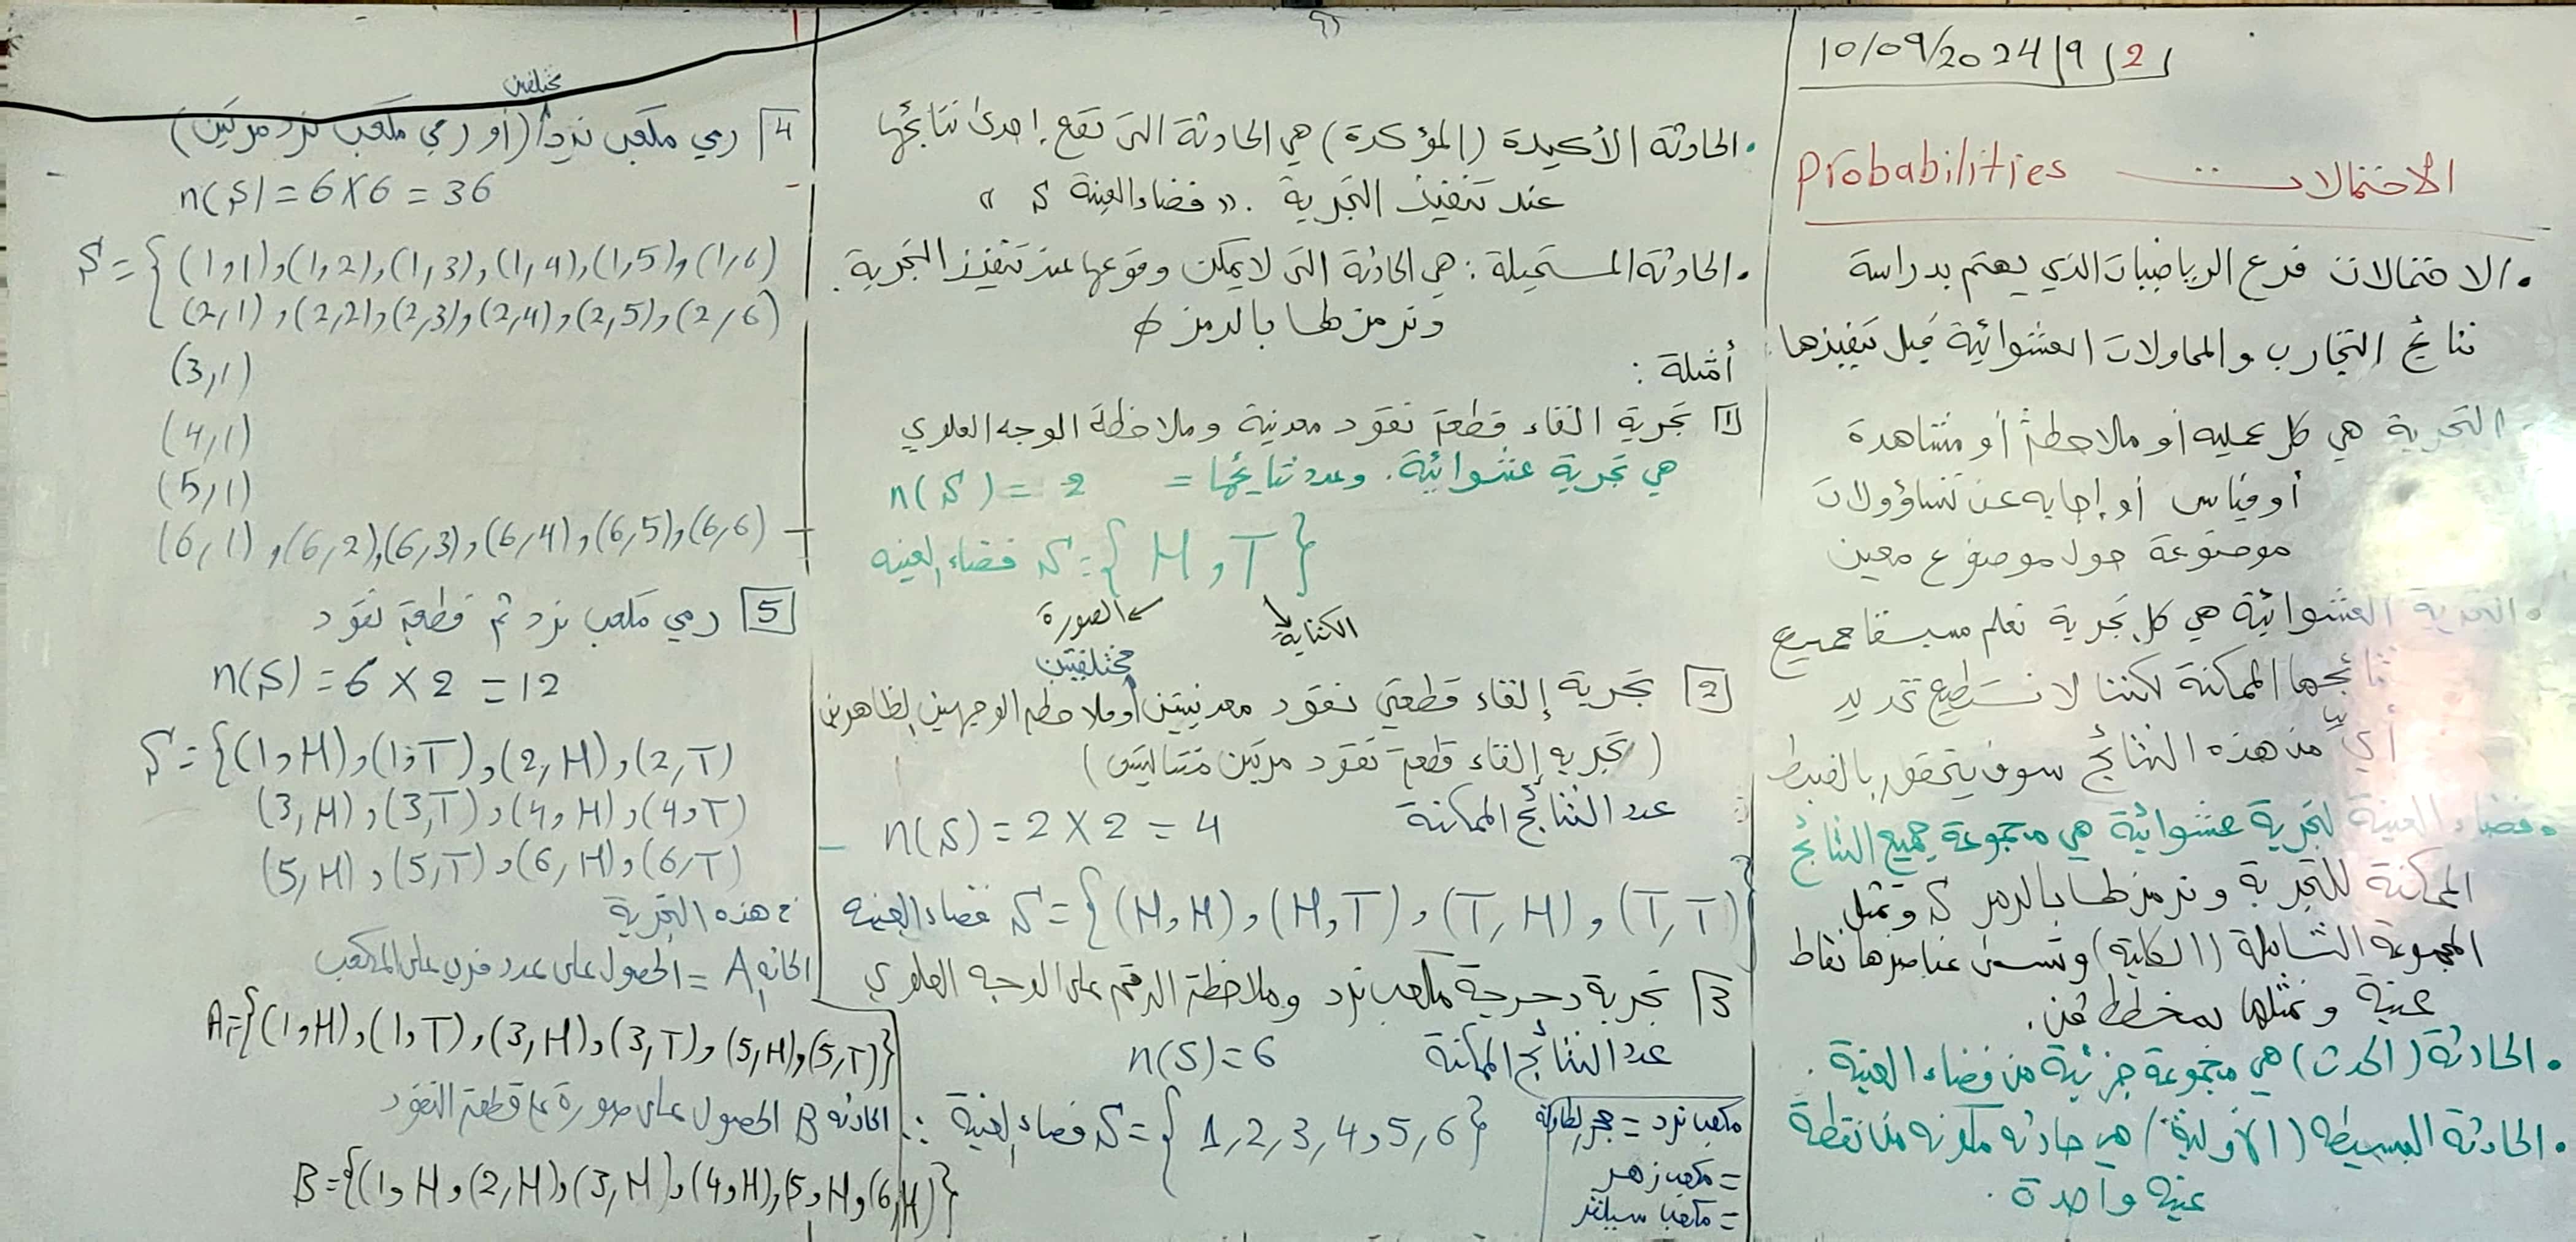 10/09/2024 | 9 | 2
الاحتمالات Probabilities
• الاحتمالات فرع الرياضيات الذي يهتم بدراسة
نتائج التجارب والمحاولات العشوائية قبل تنفيذها
• التجربة هي كل عملية أو ملاحظة أو مشاهدة
أو قياس أو إجابه عن تساؤولات
موضوعة حول موضوع معين
• التجربة العشوائية هي كل تجربة نعلم مسبقا جميع
نتائجها الممكنة لكننا لا نستطيع تحديد
أيّ من هذه النتائج سوف يتحقق بالضبط
• فضاء العينة لتجربة عشوائية هي مجموعة جميع النتائج
الممكنة للتجربة ونرمز لها بالرمز S وتمثل
المجموعة الشاملة (الكلية) وتسمى عناصرها نقاط
عينة ونمثلها بمخطط فن.
• الحادثة (الحدث) هي مجموعة جزئية من فضاء العينة.
• الحادثة البسيطة (الأولية) هي حادثه مكونه من نقطة
عينه واحدة.
• الحادثة الأكيدة (المؤكدة) هي الحادثة التي تقع إحدى نتائجها
عند تنفيذ التجربة. «فضاء العينة S»
• الحادثة المستحيلة: هي الحادثة التي لا يمكن وقوعها عند تنفيذ التجربة.
ونرمز لها بالرمز ϕ
أمثلة:
1 تجربة القاء قطعة نقود معدنية وملاحظة الوجه العلوي
هي تجربة عشوائية. وعدد نتائجها = n(S) = 2
فضاء العينه S = { H , T }
الصورة الكتابة
مختلفتين
2 تجربة إلقاء قطعتي نقود معدنيتين وملاحظة الوجهين الظاهرين
(تجربه إلقاء قطعة نقود مرتين متتاليتين)
عدد النتائج الممكنة n(S) = 2 X 2 = 4
فضاء العينه S = { (H,H), (H,T), (T,H), (T,T) }
3 تجربة دحرجة مكعب نرد وملاحظة الرقم على الوجه العلوي
عدد النتائج الممكنة n(S) = 6
∴ فضاء العينة S = { 1, 2, 3, 4, 5, 6 }
مكعب نرد = حجر الطاولة
= مكعب زهر
= مكعب
مختلفين
4 رمي مكعبي نرد (أو رمي مكعب نرد مرتين)
n(S) = 6 X 6 = 36
S = { (1,1), (1,2), (1,3), (1,4), (1,5), (1,6)
(2,1), (2,2), (2,3), (2,4), (2,5), (2,6)
(3,1)
(4,1)
(5,1)
(6,1), (6,2), (6,3), (6,4), (6,5), (6,6)
5 رمي مكعب نرد ثم قطعة نقود
n(S) = 6 X 2 = 12
S = {(1,H), (1,T), (2,H), (2,T)
(3,H), (3,T), (4,H), (4,T)
(5,H), (5,T), (6,H), (6,T)
هذه التجربة
A = الحصول على عدد فردي على المكعب
A = {(1,H), (1,T), (3,H), (3,T), (5,H), (5,T)}
الحادثه B الحصول على صورة على قطعة النقود
B = {(1,H, (2,H), (3,H), (4,H), (5,H, (6,H)}